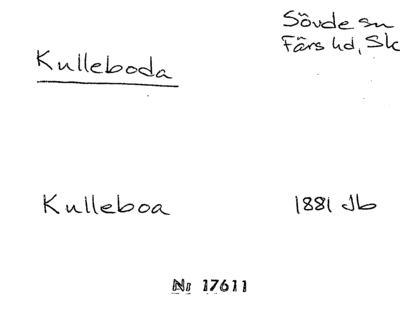 Sövde sn
Färs hd, Sk
Kulleboda
Kulleboa 1881 Jb
Nr 17611